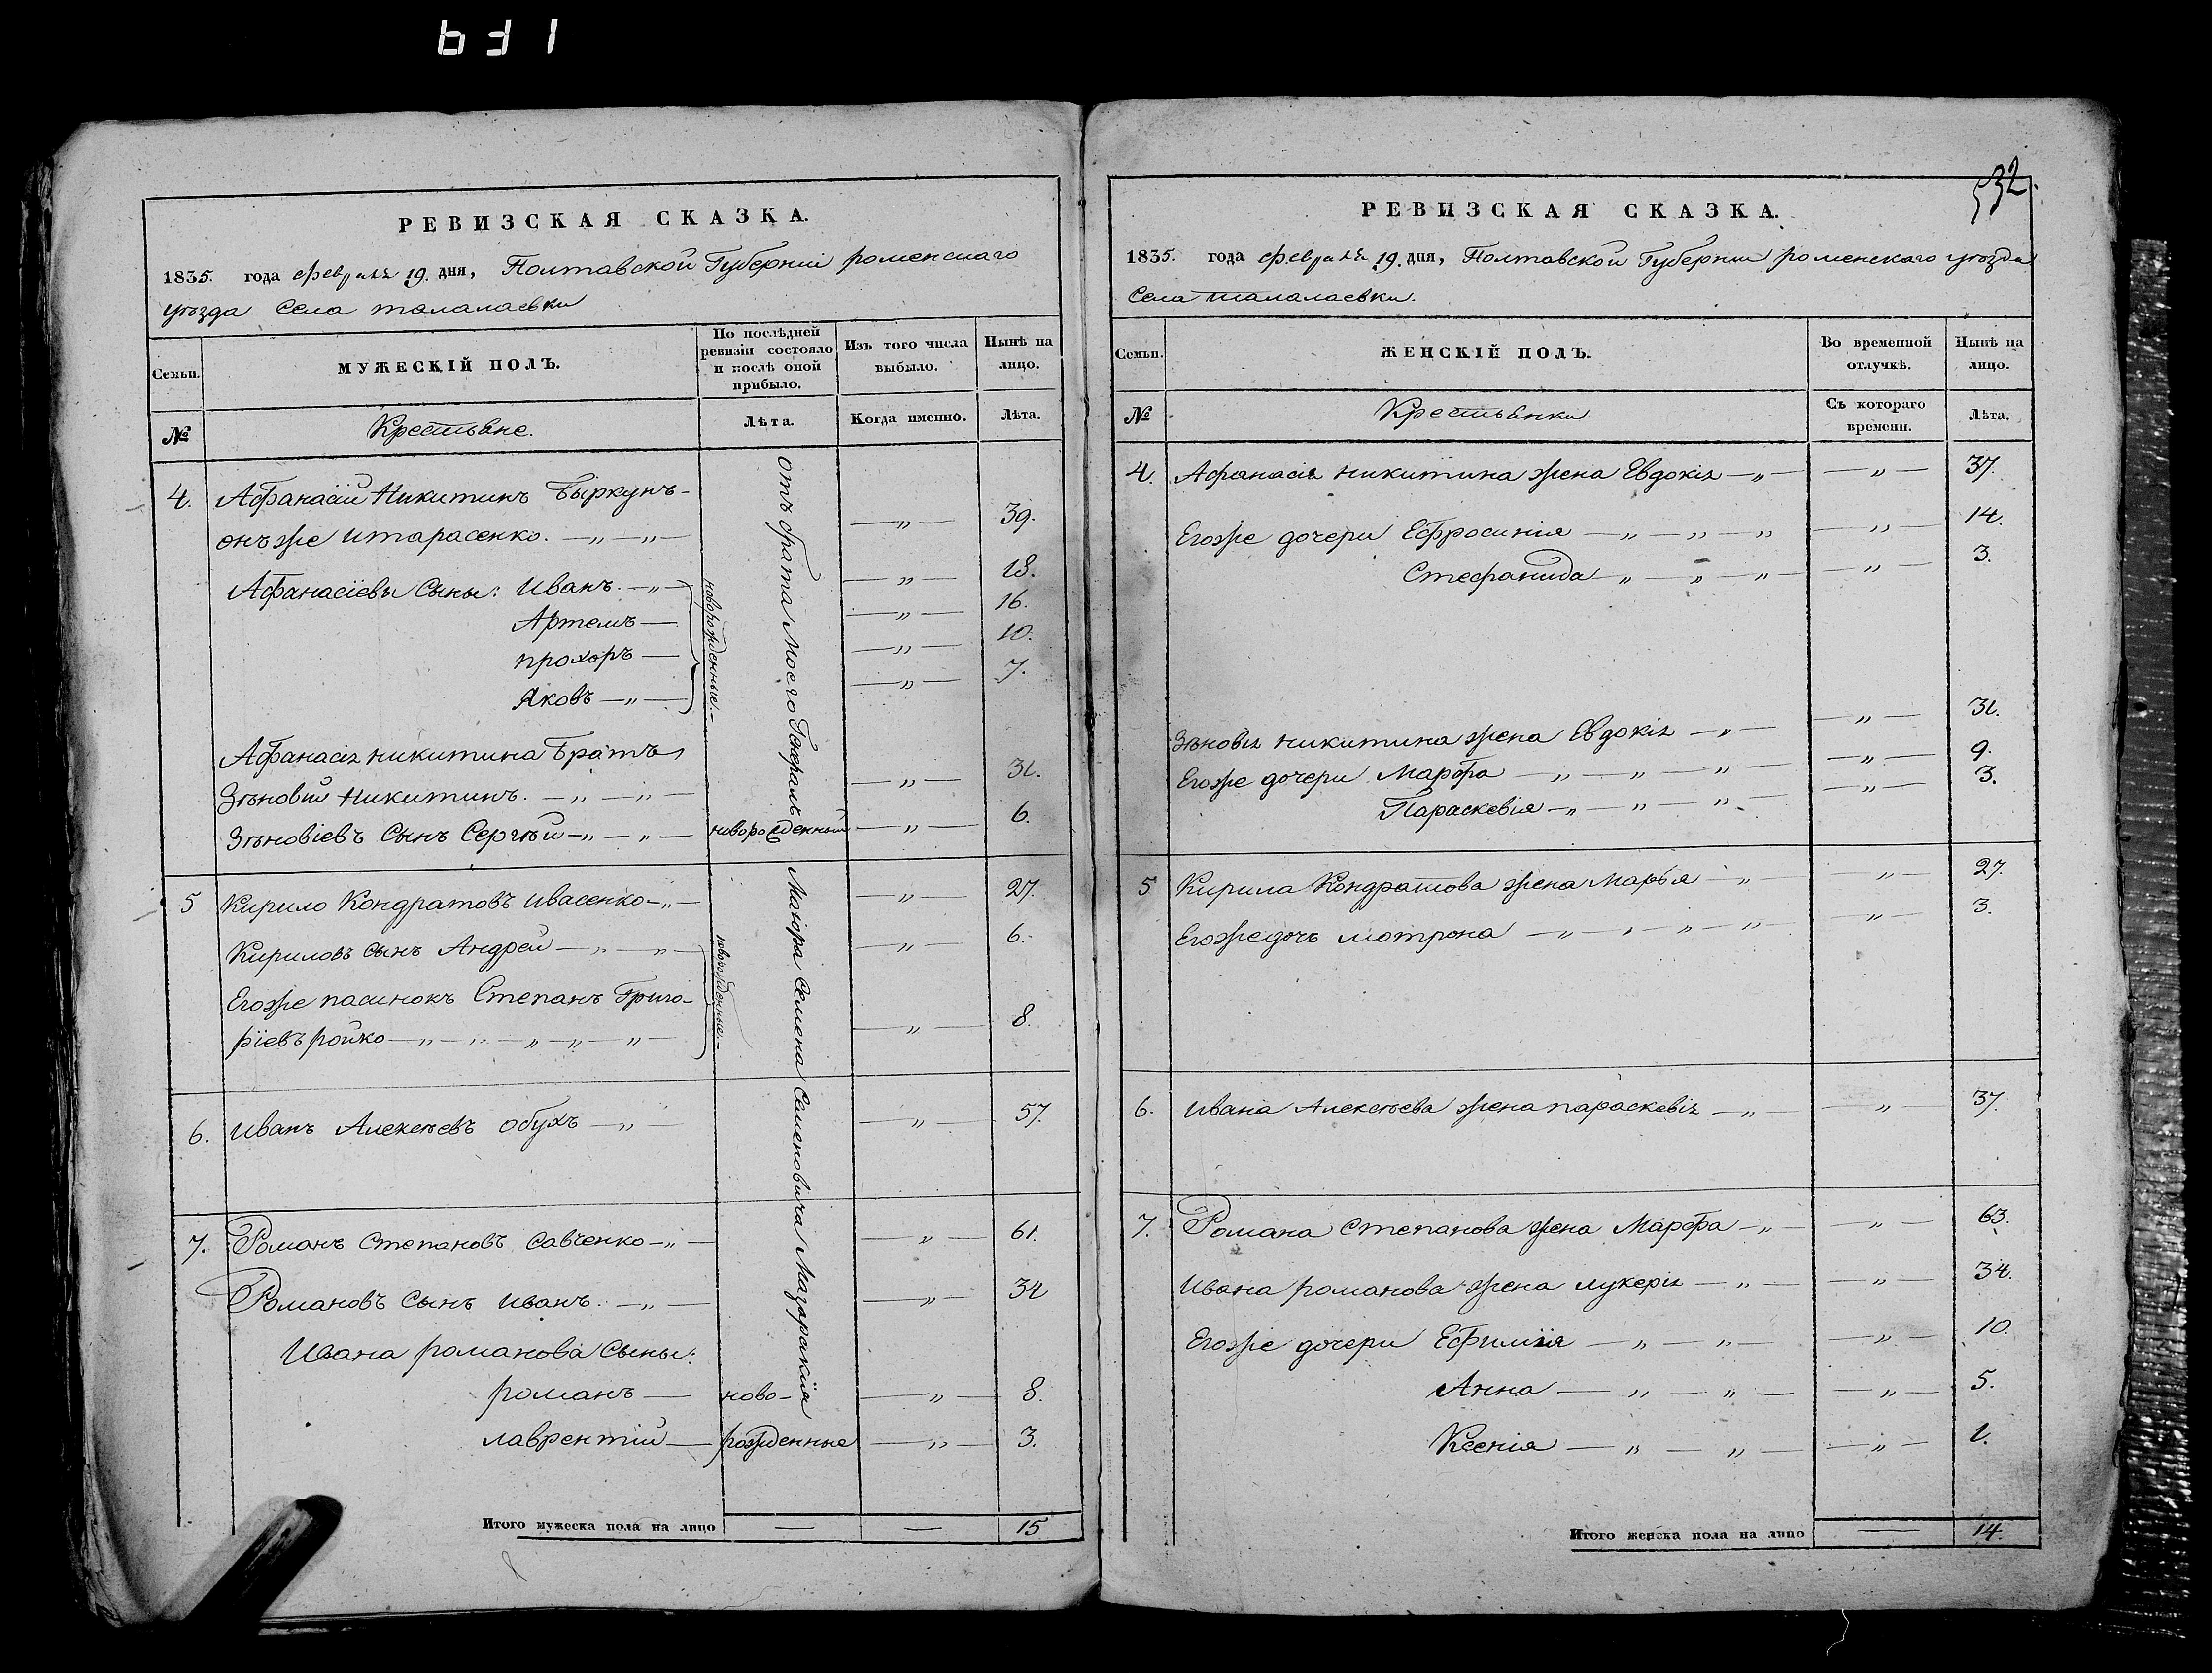 РЕВИЗСКАЯ СКАЗКА.
1835. года февраля 19. дня, Полтавской Губерніи роменскаго
уѣзда Села талалаевки
Семьи.
МУЖЕСКІЙ ПОЛЪ.
По послѣдней ревизіи состояло и послѣ оной прибыло.
Изъ того числа выбыло.
Нынѣ на лицо.
№
Крестьяне.
Лѣта.
Когда именно.
Лѣта.
4. Афанасій Никитинъ Быркунъ-
онъ же итарасенко. — „ — „ — — „ — 39.
Афанасіевы Сыны: Иванъ. — „ — — „ — 18.
Артемъ — — „ — 16.
прохоръ — — „ — 10.
Яковъ — „ — — „ — 7.
новорожденные. —
Афанасія никитина Братъ
Зѣновій Никитинъ. — „ — „ — — „ — 31.
Зѣновіевъ Сынъ Сергѣй — „ — „ — новорожденный — „ — 6.
5 Кирило Кондратовъ ивасенко — „ — — „ — 27.
Кириловъ сынъ Андрей — „ — „ — — „ — 6.
Егоже пасинокъ Степанъ Григо-
ріевъ ройко — „ — „ — „ — „ — „ — — „ — 8.
новорожденные. —
6. Иванъ Алексѣевъ обухъ — „ — — „ — 57.
7. Романъ Степановъ Савченко — „ — — „ — 61.
Романовъ Сынъ Иванъ. — „ — — „ — 34
Ивана романова Сыны:
романъ — ново- — „ — 8.
лаврентій — рожденные — „ — 3.
отъ брата Моего Генералъ Маіора Семена Семеновича Мазаракія
Итого мужеска пола на лицо — — 15
532.
РЕВИЗСКАЯ СКАЗКА.
1835. года февраля 19. дня, Полтавской Губерніи роменскаго уѣзда
Села талалаевки.
Семьи.
ЖЕНСКІЙ ПОЛЪ.
Во временной отлучкѣ.
Нынѣ на лицо.
№
Крестьянки
Съ котораго времени.
Лѣта.
4. Афанасія никитина жена Евдокія — „ — — „ — 37.
Егоже дочери Ефросинія — „ — „ — „ — „ — 14.
Стефанида — „ — „ — „ — — „ — 3.
Зѣновія никитина жена Евдокія — „ — — „ — 31.
Егоже дочери Марфа — „ — „ — „ — — „ — 9.
Параскевія — „ — „ — „ — — „ — 3.
5 Кирила Кондратова жена Марья — „ — — „ — 27.
Егоже дочь мотрона — „ — „ — „ — „ — — „ — 3.
6. Ивана Алексѣева жена параскевія — „ — — „ — 37.
7. Романа Степанова жена Марфа — „ — — „ — 63.
Ивана романова жена лукерія — „ — — „ — 34.
Егоже дочери Ефимія — „ — „ — — „ — 10.
Анна — „ — „ — — „ — 5.
Ксенія — „ — „ — — „ — 1.
Итого женска пола на лицо — 14.